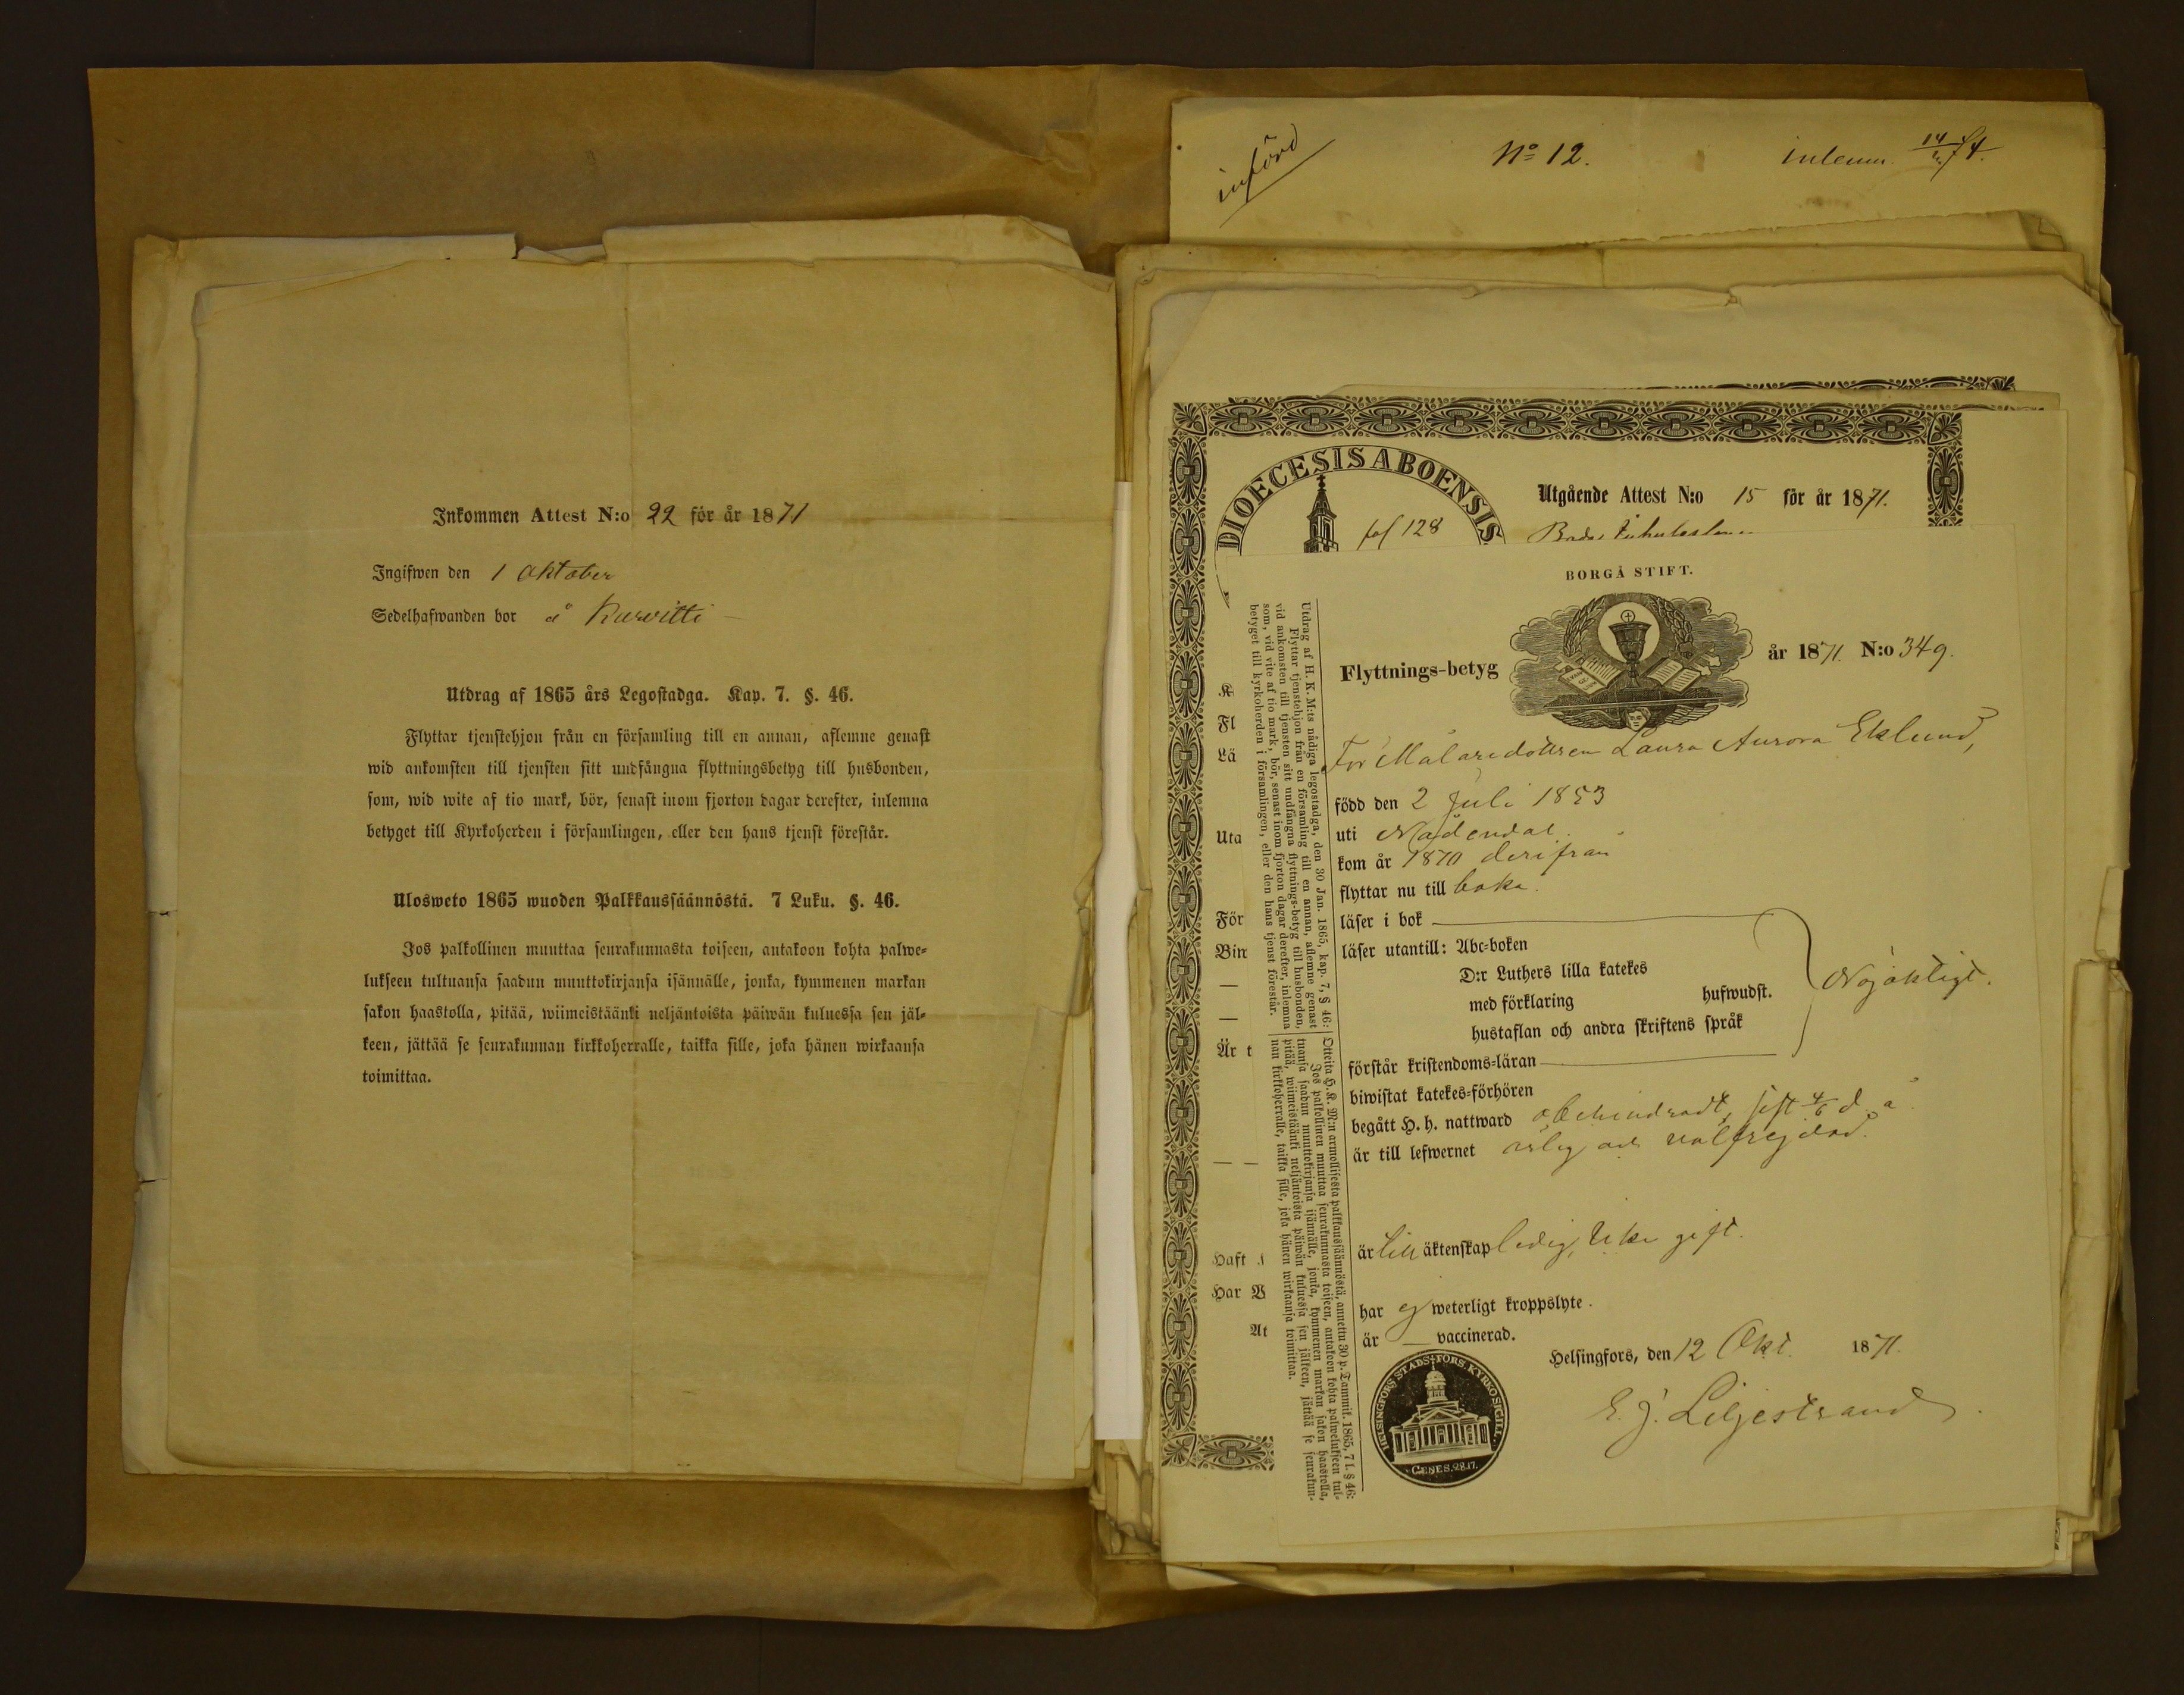 Inkommen Attest N:o 22 för år 1871
Ingifwen den 1 Oktober
Sedelhafwanden bor å Kurvitti
Utdrag af 1865 års Legostadga. Kap. 7. §. 46.
Flyttar tjenstehjon från en församling till en annan, aflemne genast
wid ankomsten till tjensten sitt undfångna flyttningsbetyg till husbonden,
som, wid wite af tio mark, bör, senast inom fjorton dagar derefter, inlemna
betyget till Kyrkoherden i församlingen, eller den hans tjenst förestår.
Ulosweto 1865 wuoden Palkkaussäännöstä. 7 Luku. §. 46.
Jos palkollinen muuttaa seurakunnasta toiseen, antakoon kohta palwe-
lukseen tultuansa saadun muuttokirjansa isännälle, jonka, kymmenen markan
sakon haastolla, pitää, wiimeistäänki neljäntoista päiwän kuluessa sen jäl-
keen, jättää se seurakunnan kirkkoherralle, taikka sille, joka hänen wirkaansa
toimittaa.
införd
No 12.
inlemn. 14/74.
DIOECESIS ABOENSIS
fol 128
Utgående Attest N:o 15 för år 1871.
K
Fl
Lä
Uta
För
Bin
Är t
Haft
Har W
At
Utdrag af H. K. M:ts nådiga legostadga, den 30 Jan. 1865, kap. 7, § 46:
Flyttar tjenstehjon från en församling till en annan, aflemne genast
vid ankomsten till tjensten sitt undfångna flyttnings-betyg till husbonden,
som, vid vite af tio mark, bör, senast inom fjorton dagar derefter, inlemna
betyget till kyrkoherden i församlingen, eller den hans tjenst förestår.
Otteita H. K. M:n armollisesta palkkaussäännöstä, annettu 30 p. Tammik. 1865, 7 l. § 46:
Jos palkollinen muuttaa seurakunnasta toiseen, antakoon kohta palwelukseen tul-
tuansa saadun muuttokirjansa isännälle, jonka, kymmenen markan sakon haastolla,
pitää, wiimeistäänki neljäntoista päiwän kuluessa sen jälkeen, jättää se seurakun-
nan kirkkoherralle, taikka sille, joka hänen wirkaansa toimittaa.
BORGÅ STIFT.
Flyttnings-betyg år 1871. N:o 349.
För Målaredottren Laura Aurora Eklund,
född den 2 Juli 1853
uti Nådendal.
kom år 1870 derifrån
flyttar nu till baka.
läser i bok
läser utantill: Abc-boken
D:r Luthers lilla katekes
med förklaring hufwudst.
hustaflan och andra skriftens språk
Nöjaktigt.
förstår kristendoms-läran
biwistat katekes-förhören
begått H. h. nattward obehindradt, sist 4/6 d. å.
är till lefwernet ärlig och välfrejdad.
är till äktenskap ledig, icke gift.
har ej weterligt kroppslyte.
är vaccinerad.
Helsingfors, den 12 Okt. 1871.
E. J. Liljestrand.
HELSINGFORS STADSFÖRS. KYRKOSIGILL.
GENES. 28.17.